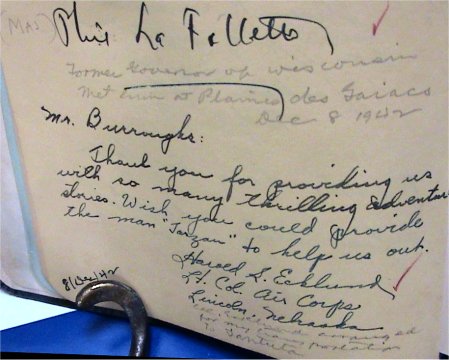 (Maj) Phil La Follette
Former Governor of Wisconsin
met him at Plaines des Gaiacs
Dec 8 1942
Mr. Burroughs:
Thank you for providing us
with so many thrilling adventure
stories. Wish you could provide
the man "Tarzan" to help us out.
Harold S. Ecklund
Lt. Col. Air Corps
Lincoln, Nebraska
8/Dec/42